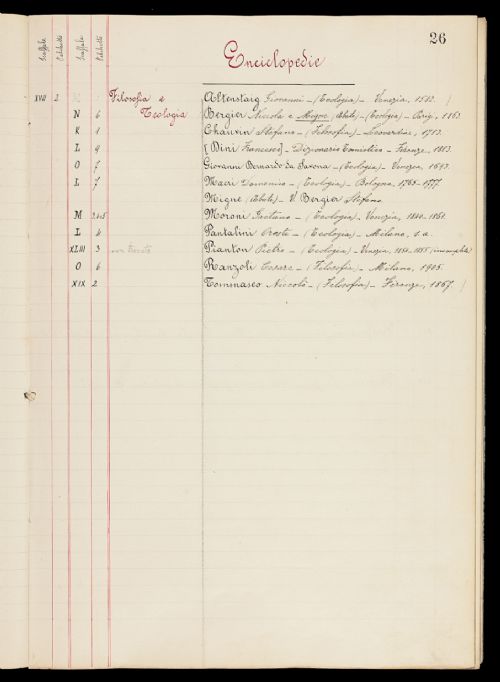 26
Enciclopedie
Scaffale Palchetto Scaffale Palchetto
XVII 2 Filosofia e Altenstaig Giovanni - (Teologia) - Venezia, 1582.
N 6 Teologia Bergier Nicola e Migne (Abate) - (Teologia) - Parigi, 1863.
K 1 Chauvin Stefano - (Filosofia) - Leovardiae, 1713.
L 9 [Dini Francesco] - Dizionario Ermistico - Firenze, 1883.
O 7 Giovanni Bernardo da Savona - (Teologia) - Venezia, 1693.
L 7 Macri Domenico - (Teologia) - Bologna, 1765-1777.
Migne (Abate) - V. Bergier Stefano.
M 3,4 e 5 Moroni Gaetano - (Teologia) - Venezia, 1840-1861.
L 4 Pantalini Oreste - (Teologia) - Milano, s.a.
XLIII 3 non trovato Pianton Pietro - (Teologia) - Venezia, 1854-1855 (incompleta)
O 6 Ranzoli Cesare - (Filosofia) - Milano, 1905.
XIX 2 Tommaseo Niccolò - (Filosofia) - Firenze, 1867.